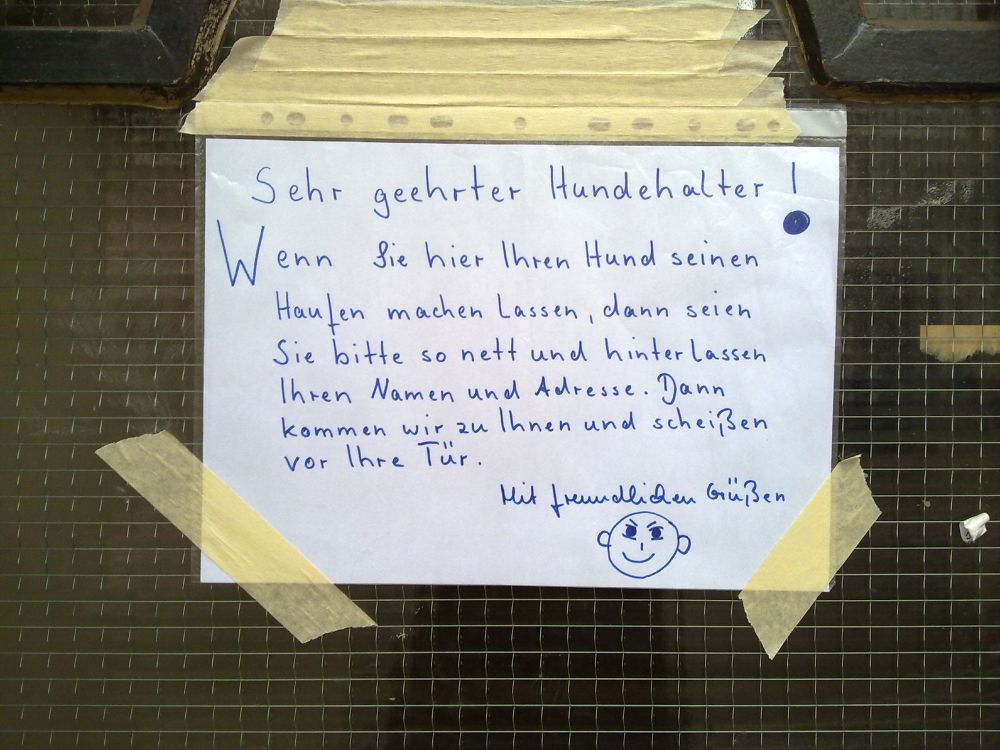 Sehr geehrter Hundehalter!
Wenn Sie hier Ihren Hund seinen
Haufen machen Lassen, dann seien
Sie bitte so nett und hinterlassen
Ihren Namen und Adresse. Dann
kommen wir zu Ihnen und scheißen
vor Ihre Tür.
Mit freundlichen Grüßen